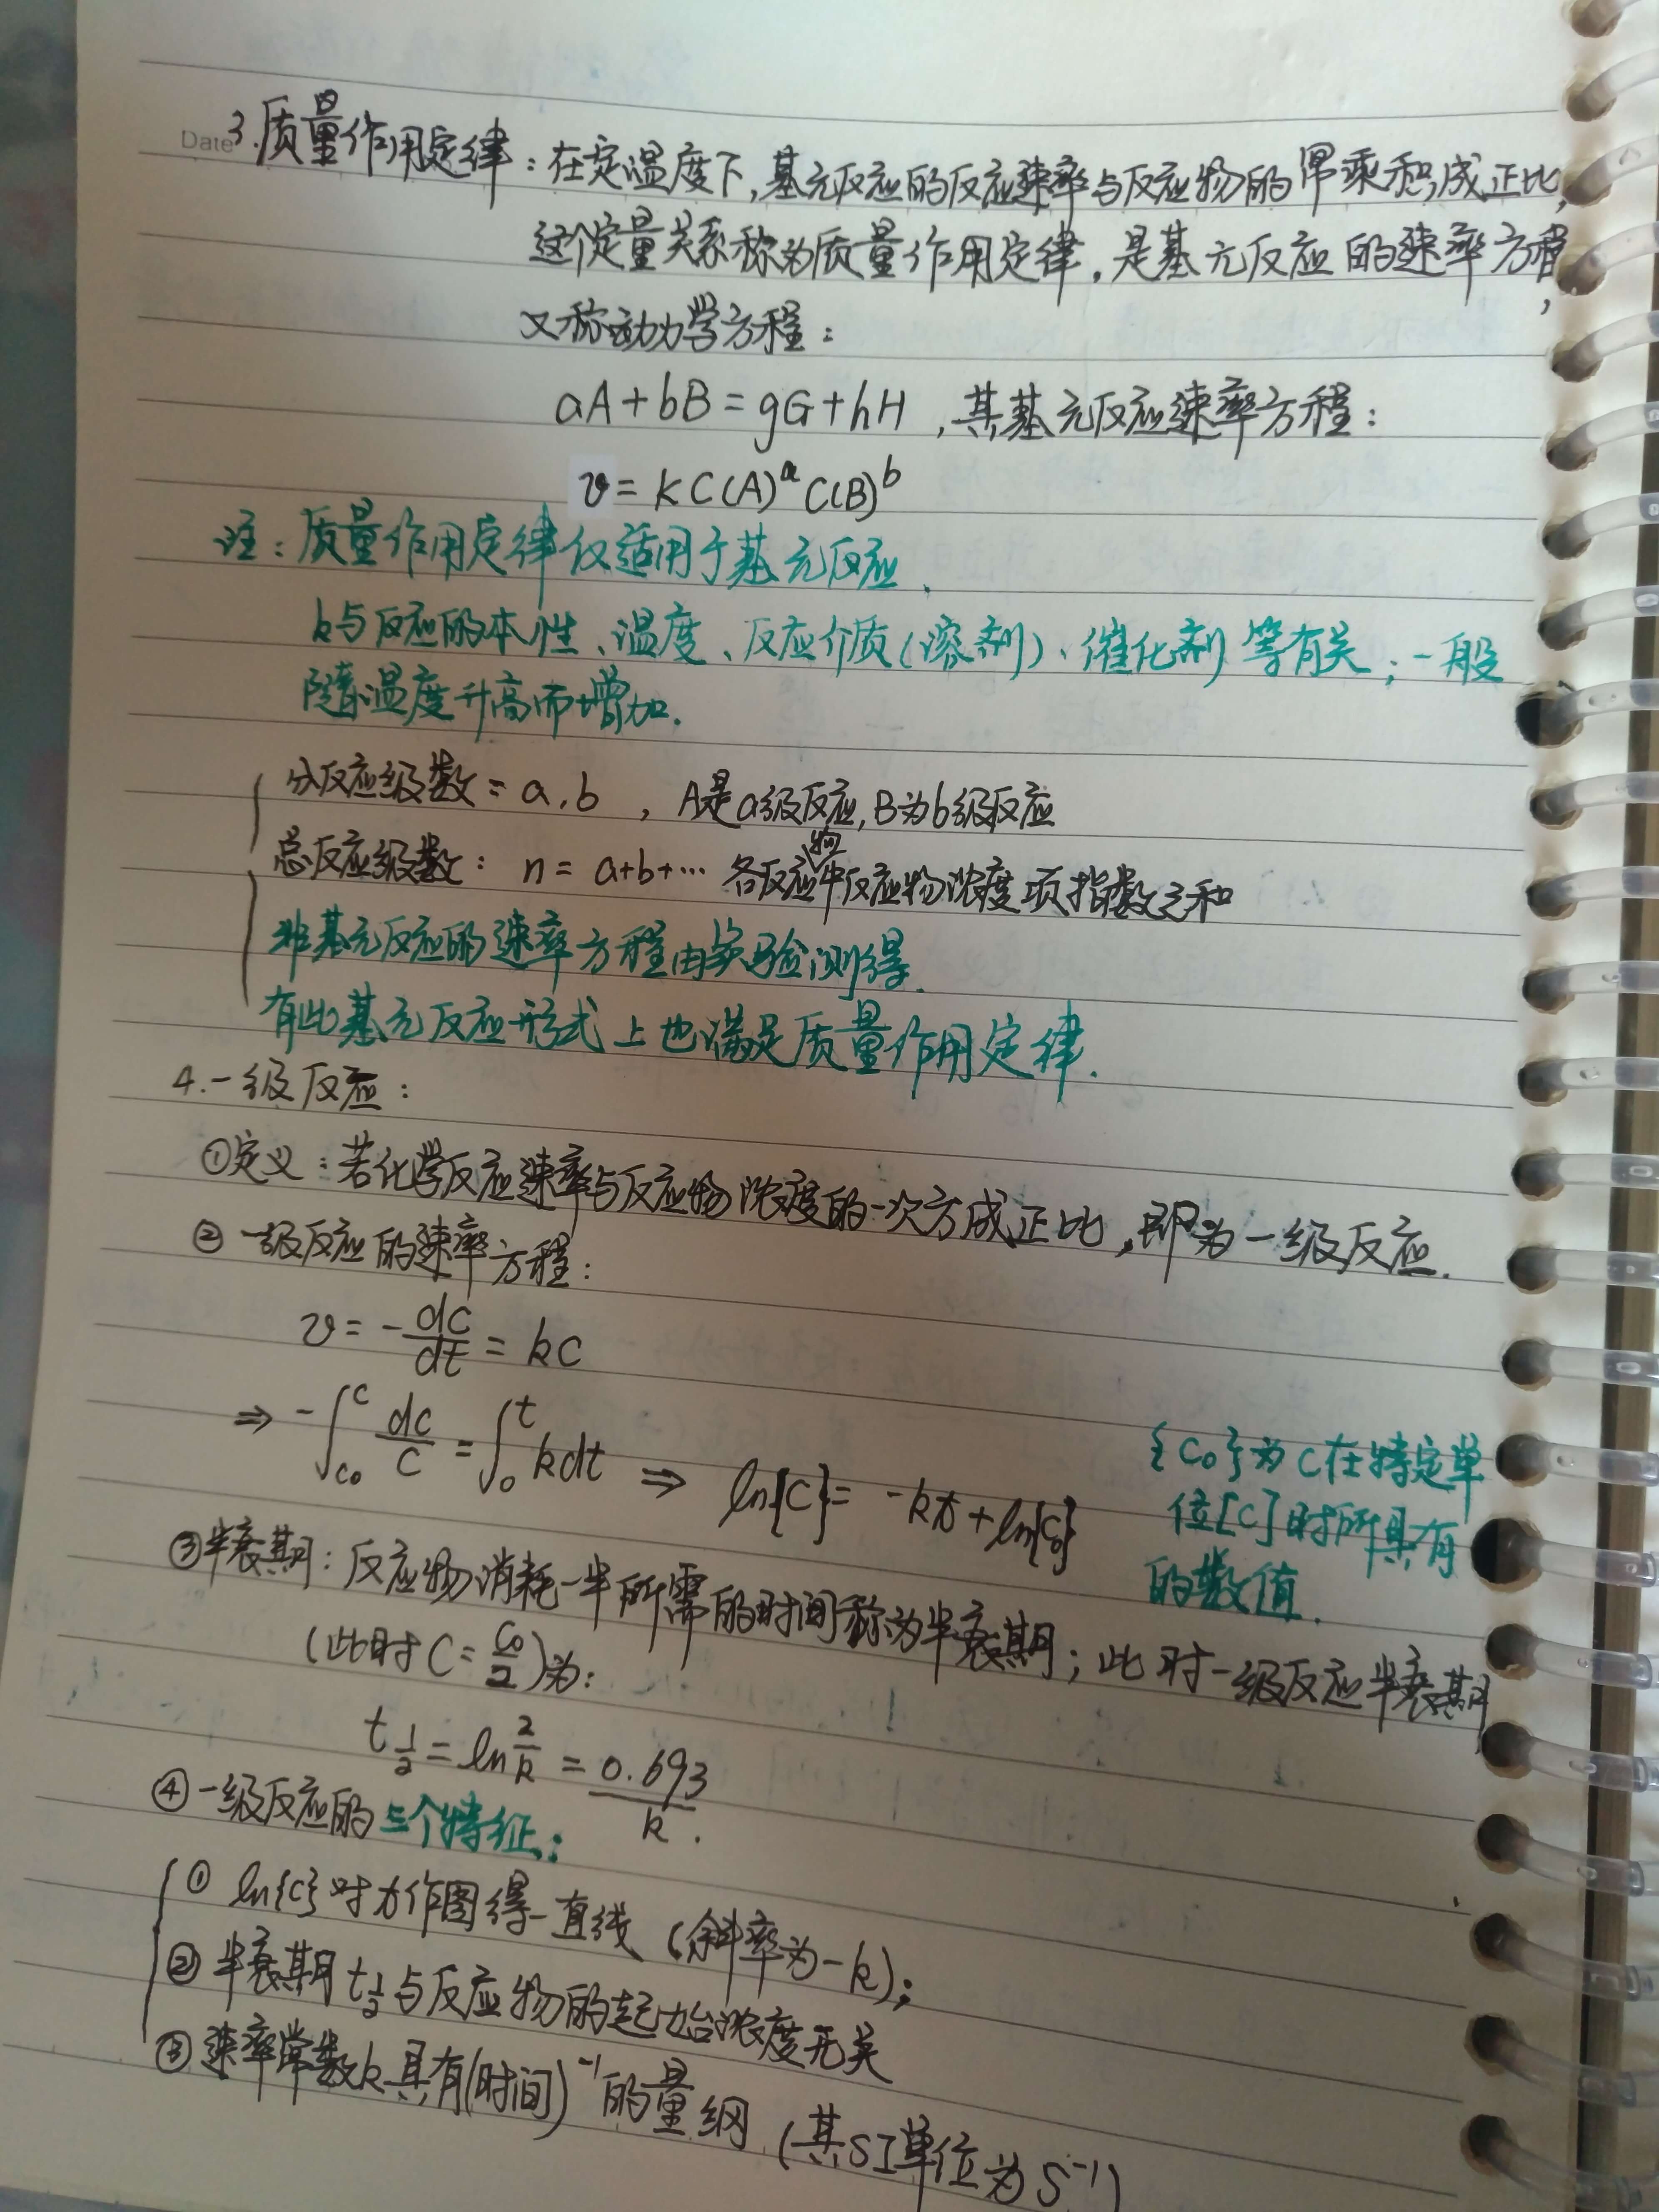 Date
3.质量作用定律：在定温度下,基元反应的反应速率与反应物的幂乘积成正比,
这个定量关系称为质量作用定律,是基元反应的速率方程,
又称动力学方程：
aA+bB=gG+hH ,其基元反应速率方程：
v=kC(A)^a C(B)^b
注：质量作用定律仅适用于基元反应.
k与反应的本性、温度、反应介质(溶剂)、催化剂等有关;一般
随温度升高而增加.
分反应级数=a,b ,A是a级反应,B为b级反应
总反应级数：n=a+b+… 各反应物中反应物浓度项指数之和
非基元反应的速率方程由实验测得.
有此基元反应形式上也满足质量作用定律.
4.一级反应：
①定义：若化学反应速率与反应物浓度的一次方成正比,即为一级反应.
②一级反应的速率方程：
v=-dc/dt=kc
⇒ -∫_{c0}^{c} dc/c=∫_0^t kdt ⇒ ln{c}=-kt+ln{c0}
{c0}为c在特定单
位[c]时所具有
的数值.
③半衰期：反应物消耗一半所需的时间称为半衰期;此时一级反应半衰期
(此时C=c0/2)为：
t1/2=ln2/k=0.693/k.
④一级反应的三个特征：
①ln{c}对t作图得一直线(斜率为-k);
②半衰期t1/2与反应物的起始浓度无关
③速率常数k具有(时间)^-1的量纲(其SI单位为S^-1)